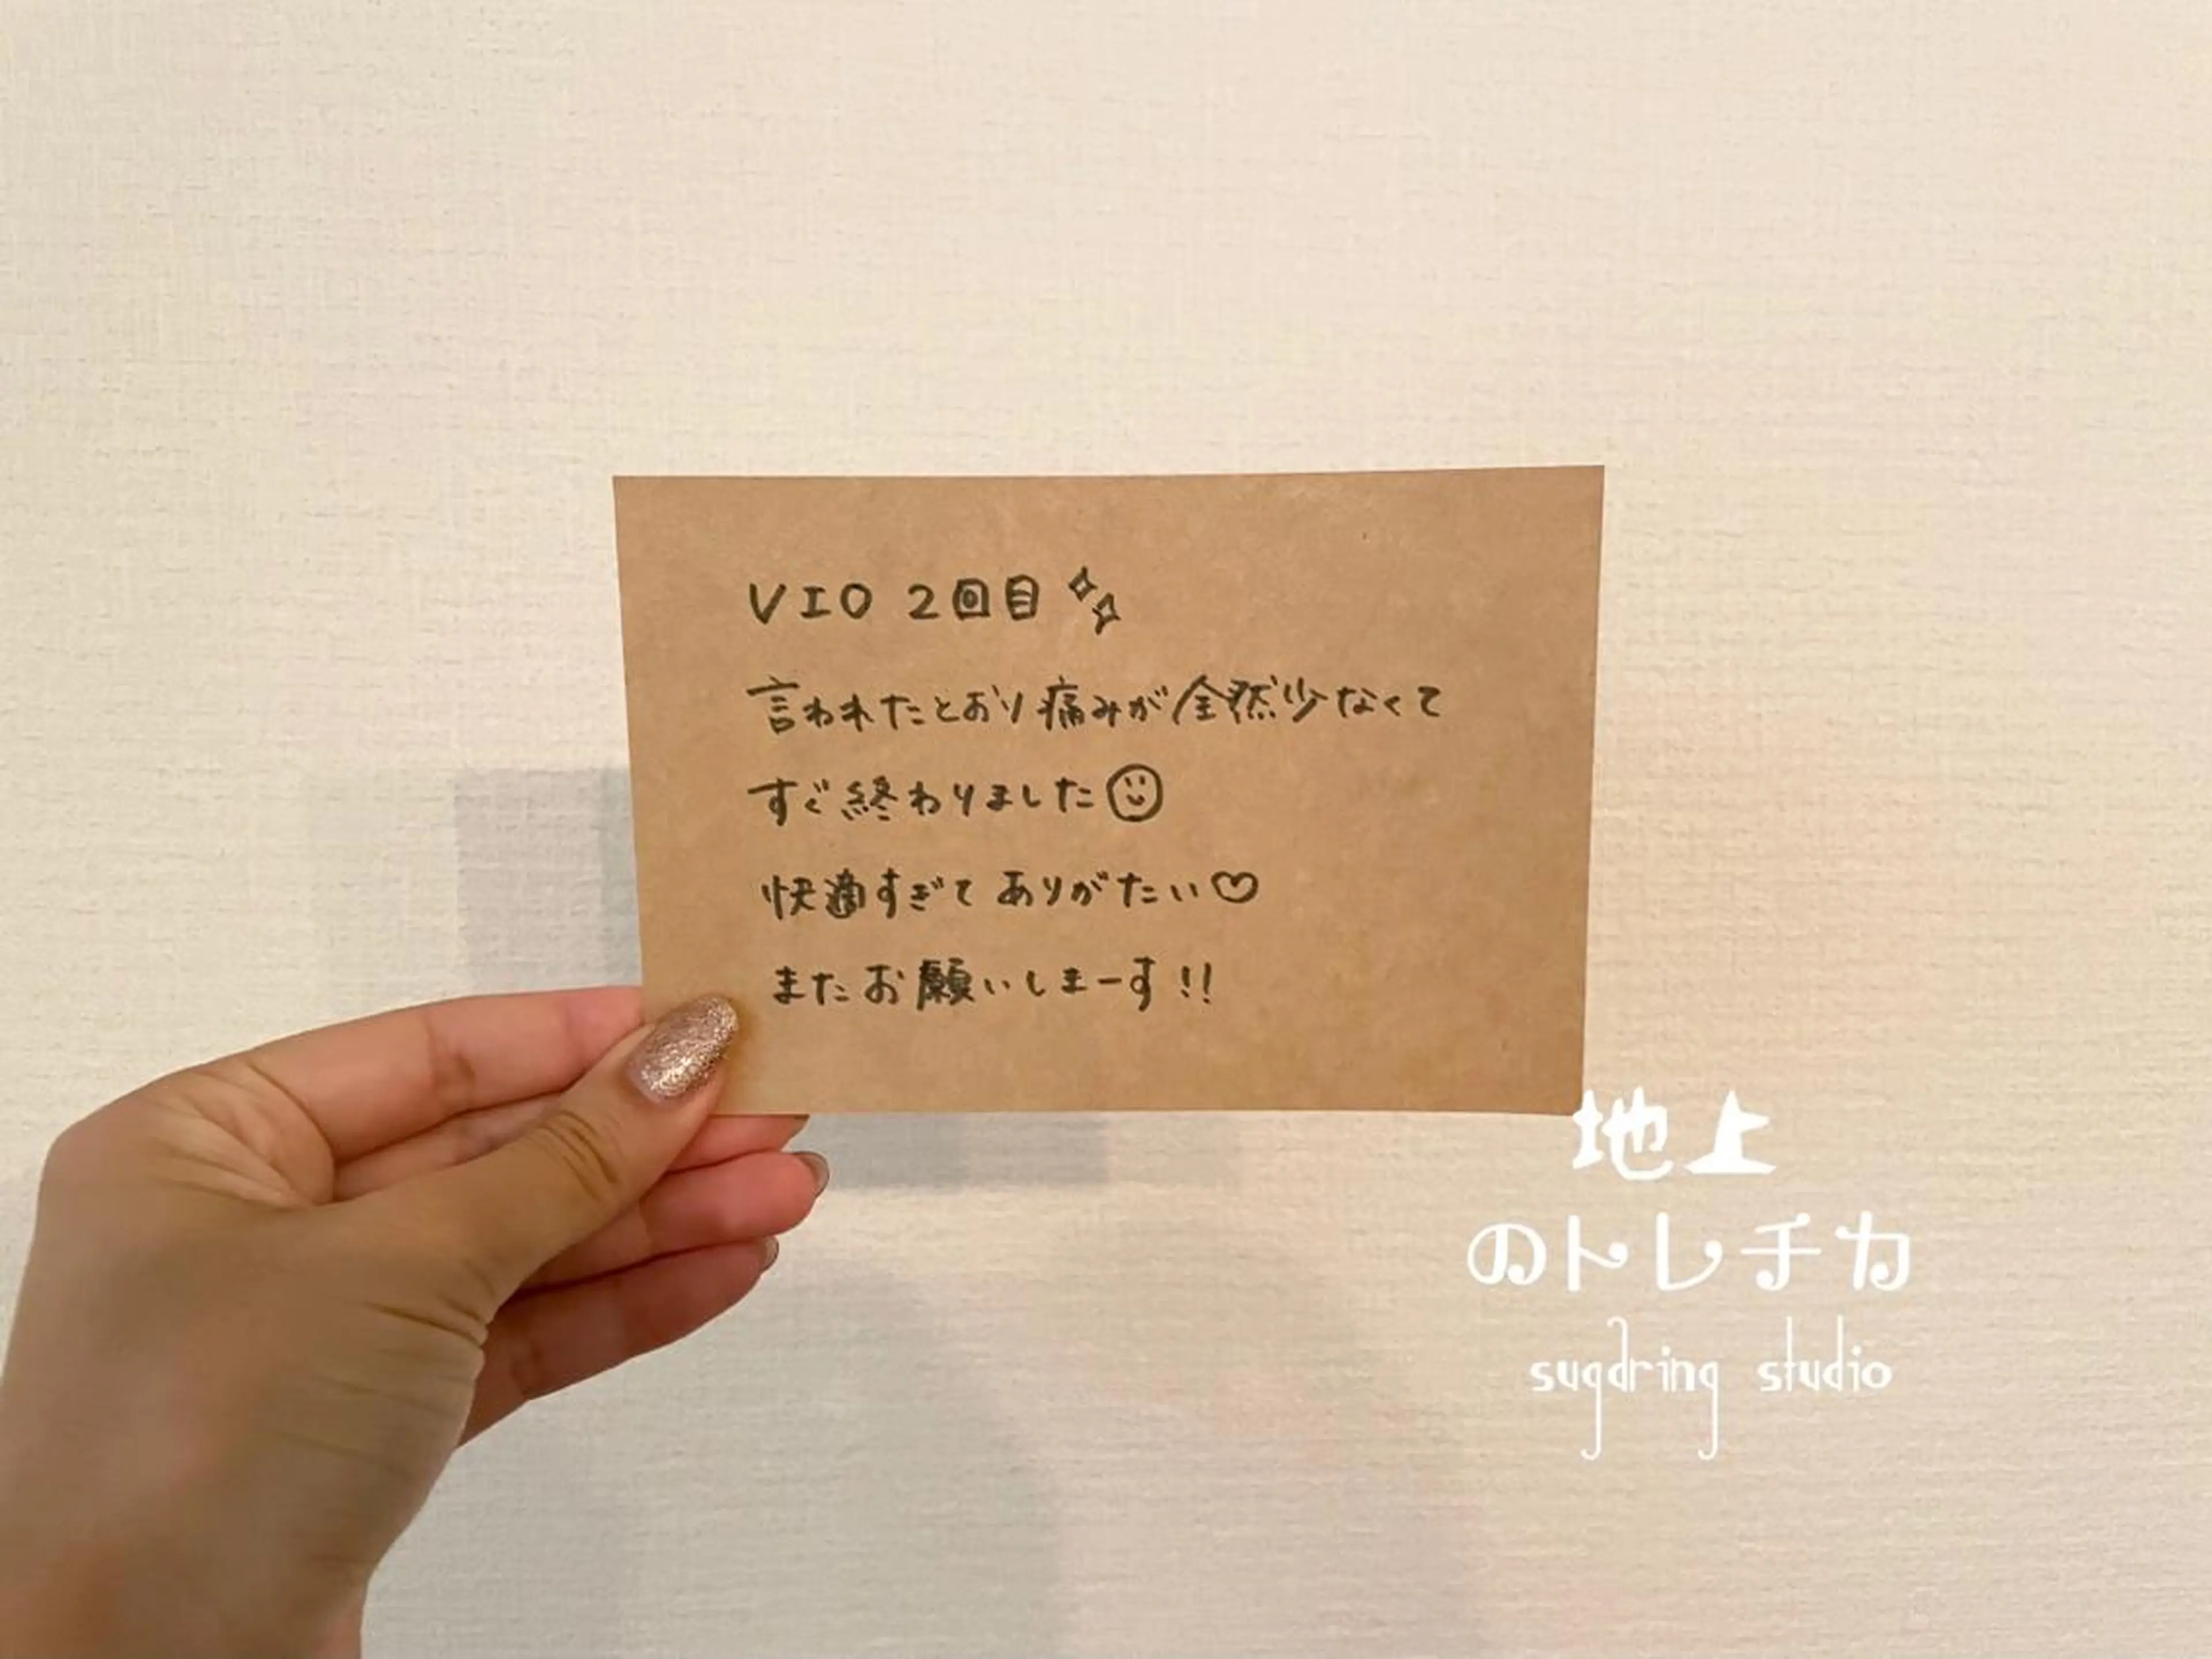 VIO 2回目✨
言われたとおり痛みが全然少なくて
すぐ終わりました☺
快適すぎてありがたい♡
またお願いしまーす!!
地上
のトレチカ
sugdring studio